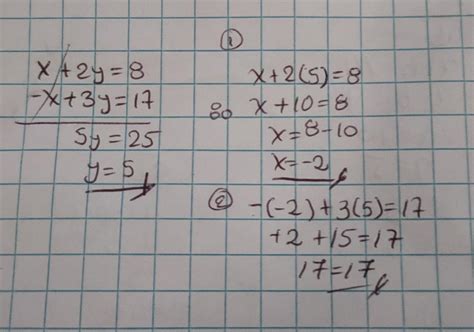 x + 2y = 8
-x + 3y = 17
5y = 25
y = 5
①
x + 2(5) = 8
so x + 10 = 8
x = 8 - 10
x = -2
② -(-2) + 3(5) = 17
+2 + 15 = 17
17 = 17